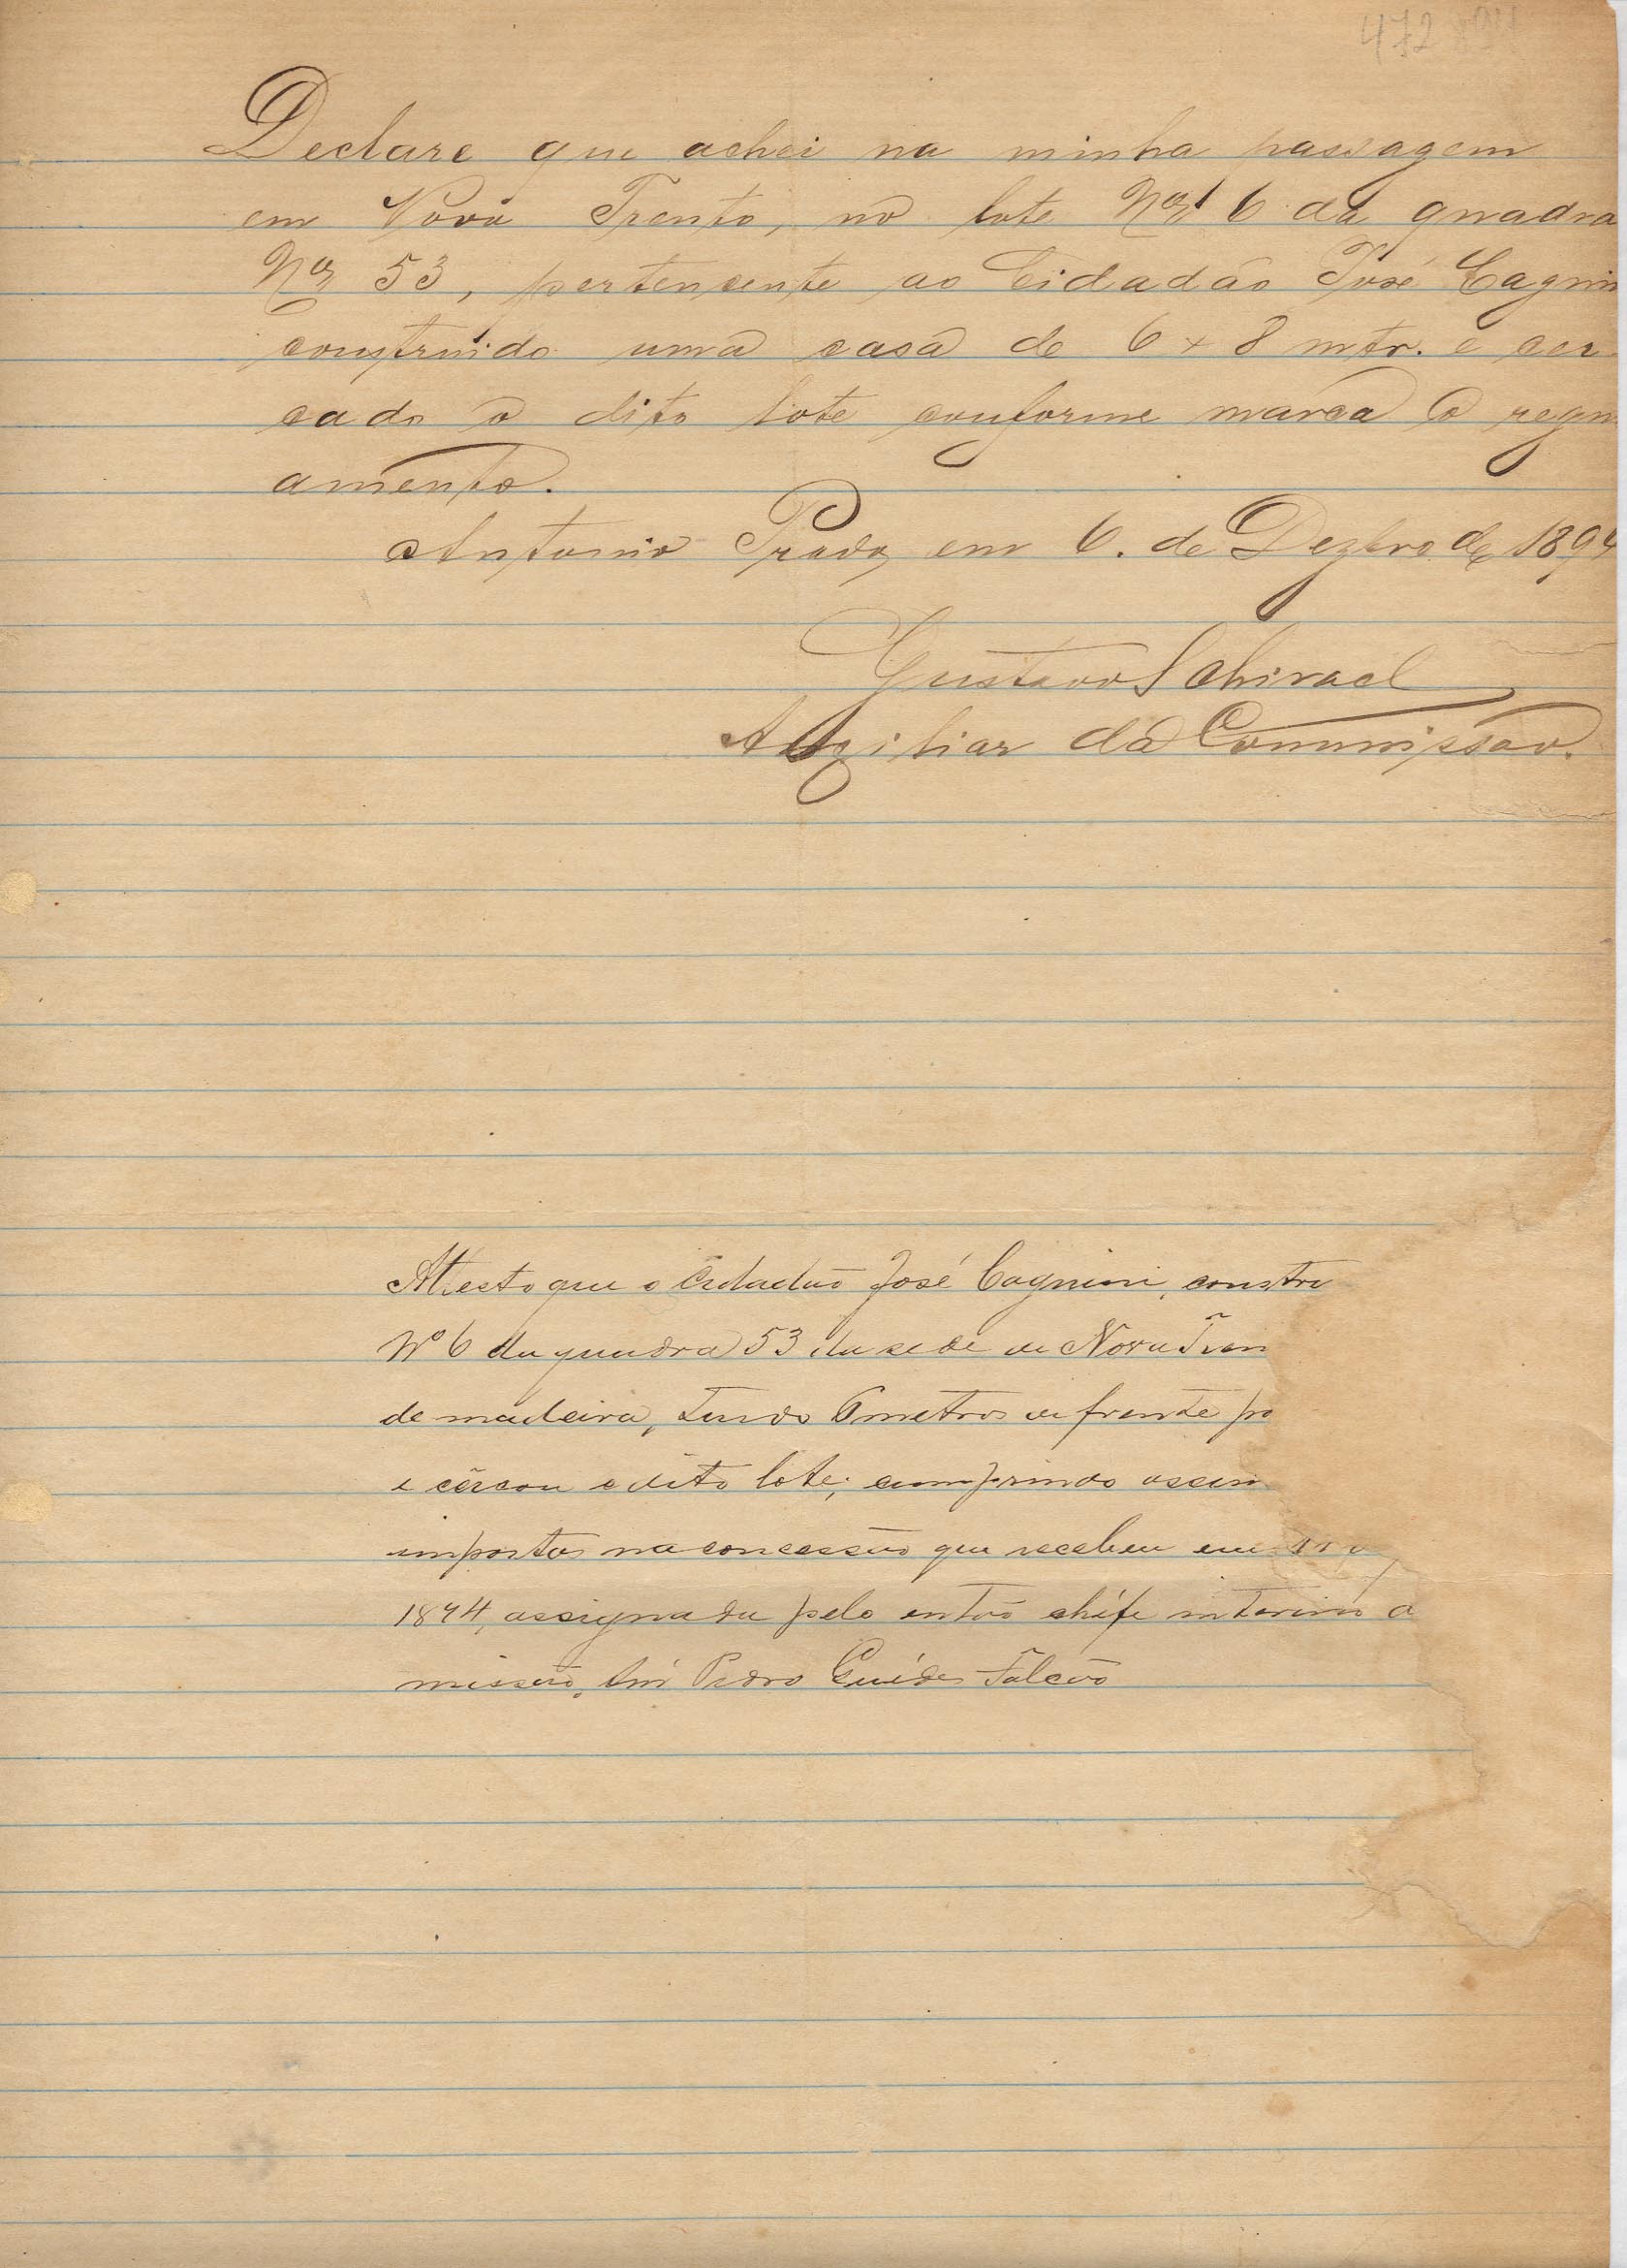 472
Declare que achei na minha passagem
em Nova Trento, no lote Nº 6 da quadra
Nº 53, pertencente ao Cidadão José Cagnin
construido uma casa de 6 x 8 mtr. e cer-
cado o dito lote conforme marca o regu
amento.
Antonio Prado, em 6. de Dezbro de 1894
Gustavo Schirael
Auxiliar da Commissão.
Attesto que o Cidadão José Cagnini, constru
Nº 6 da quadra 53 da sede de Nova Tren
de madeira, tendo 6 metros de frente po
e cercou o dito lote; cumprindo assim
impostas na concessão que recebeu em
1894, assignada pelo então chefe interino d
missão, Pedro Guédes Falcão